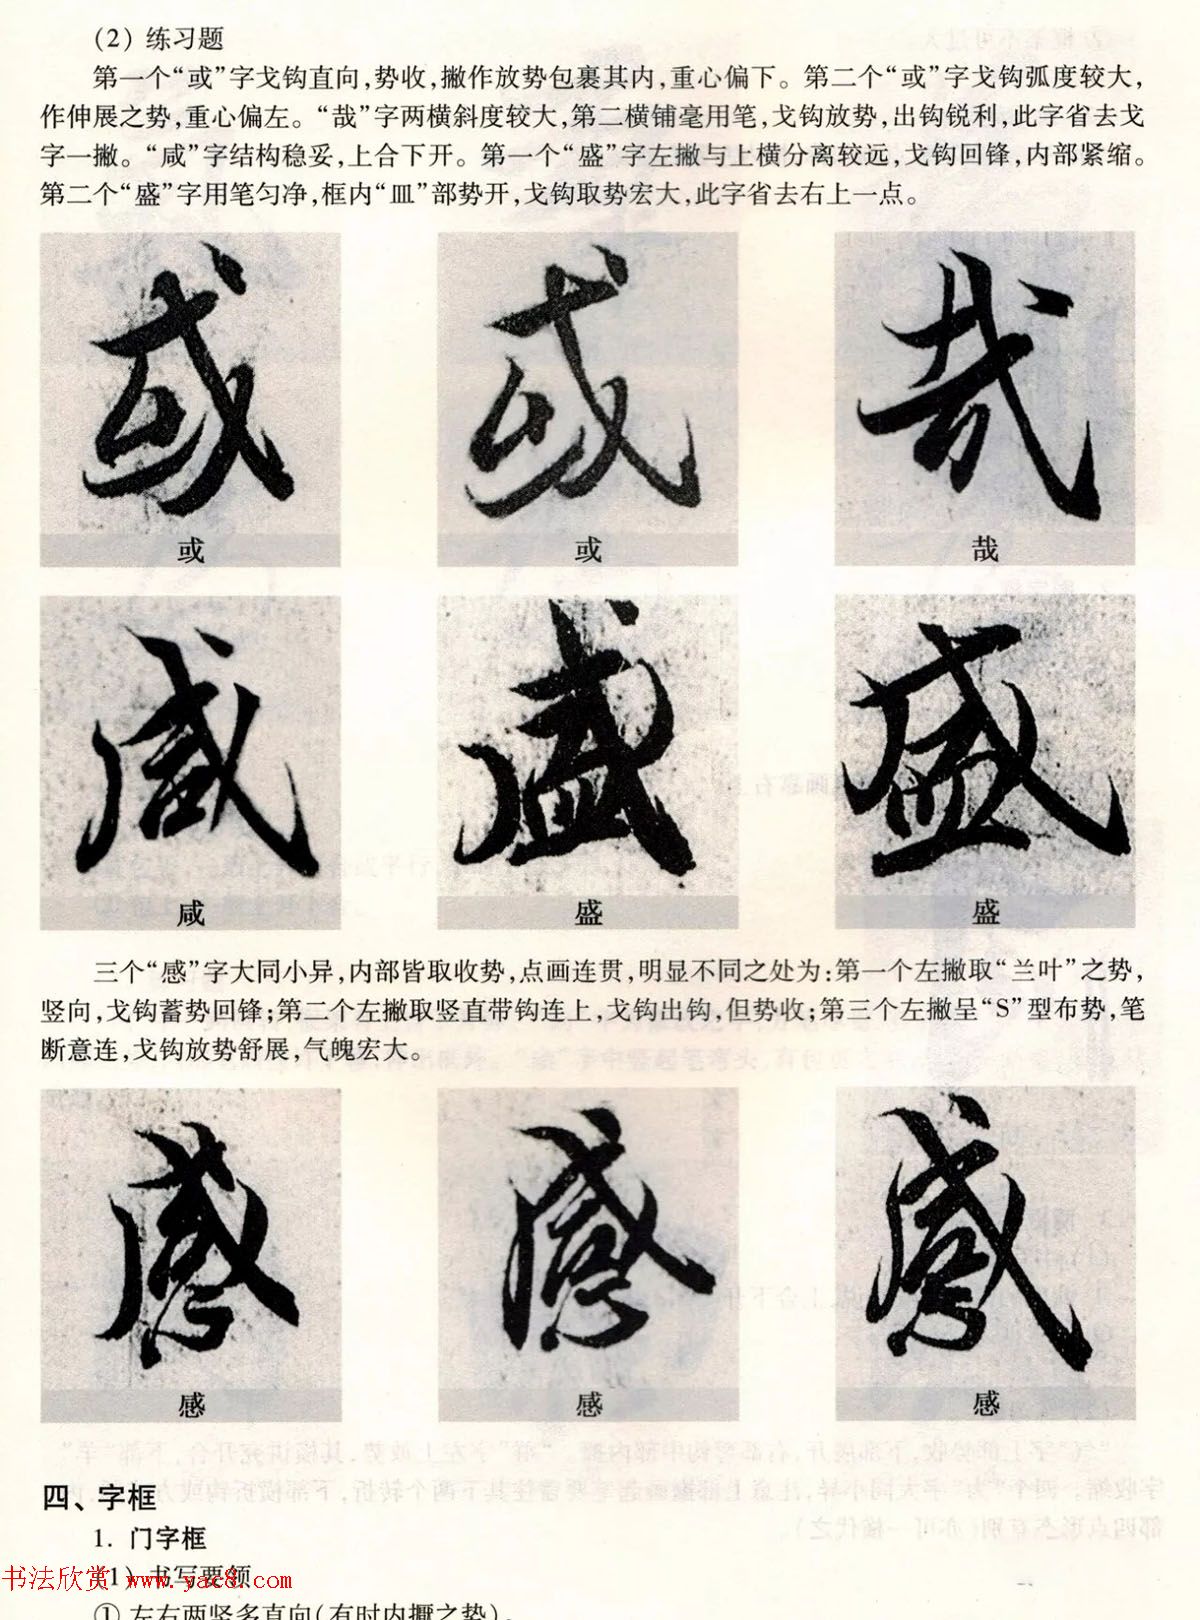 (2) 练习题
第一个“或”字戈钩直向,势收,撇作放势包裹其内,重心偏下。第二个“或”字戈钩弧度较大,
作伸展之势,重心偏左。“哉”字两横斜度较大,第二横铺毫用笔,戈钩放势,出钩锐利,此字省去戈
字一撇。“咸”字结构稳妥,上合下开。第一个“盛”字左撇与上横分离较远,戈钩回锋,内部紧缩。
第二个“盛”字用笔匀净,框内“皿”部势开,戈钩取势宏大,此字省去右上一点。
或 或 哉
或 或 哉
咸 盛 盛
咸 盛 盛
三个“感”字大同小异,内部皆取收势,点画连贯,明显不同之处为:第一个左撇取“兰叶”之势,
竖向,戈钩蓄势回锋;第二个左撇取竖直带钩连上,戈钩出钩,但势收;第三个左撇呈“S”型布势,笔
断意连,戈钩放势舒展,气魄宏大。
感 感 感
感 感 感
四、字框
1. 门字框
(1) 书写要领
书法欣赏 www.yac8.com
① 左右两竖多直向(有时内擫之势)。